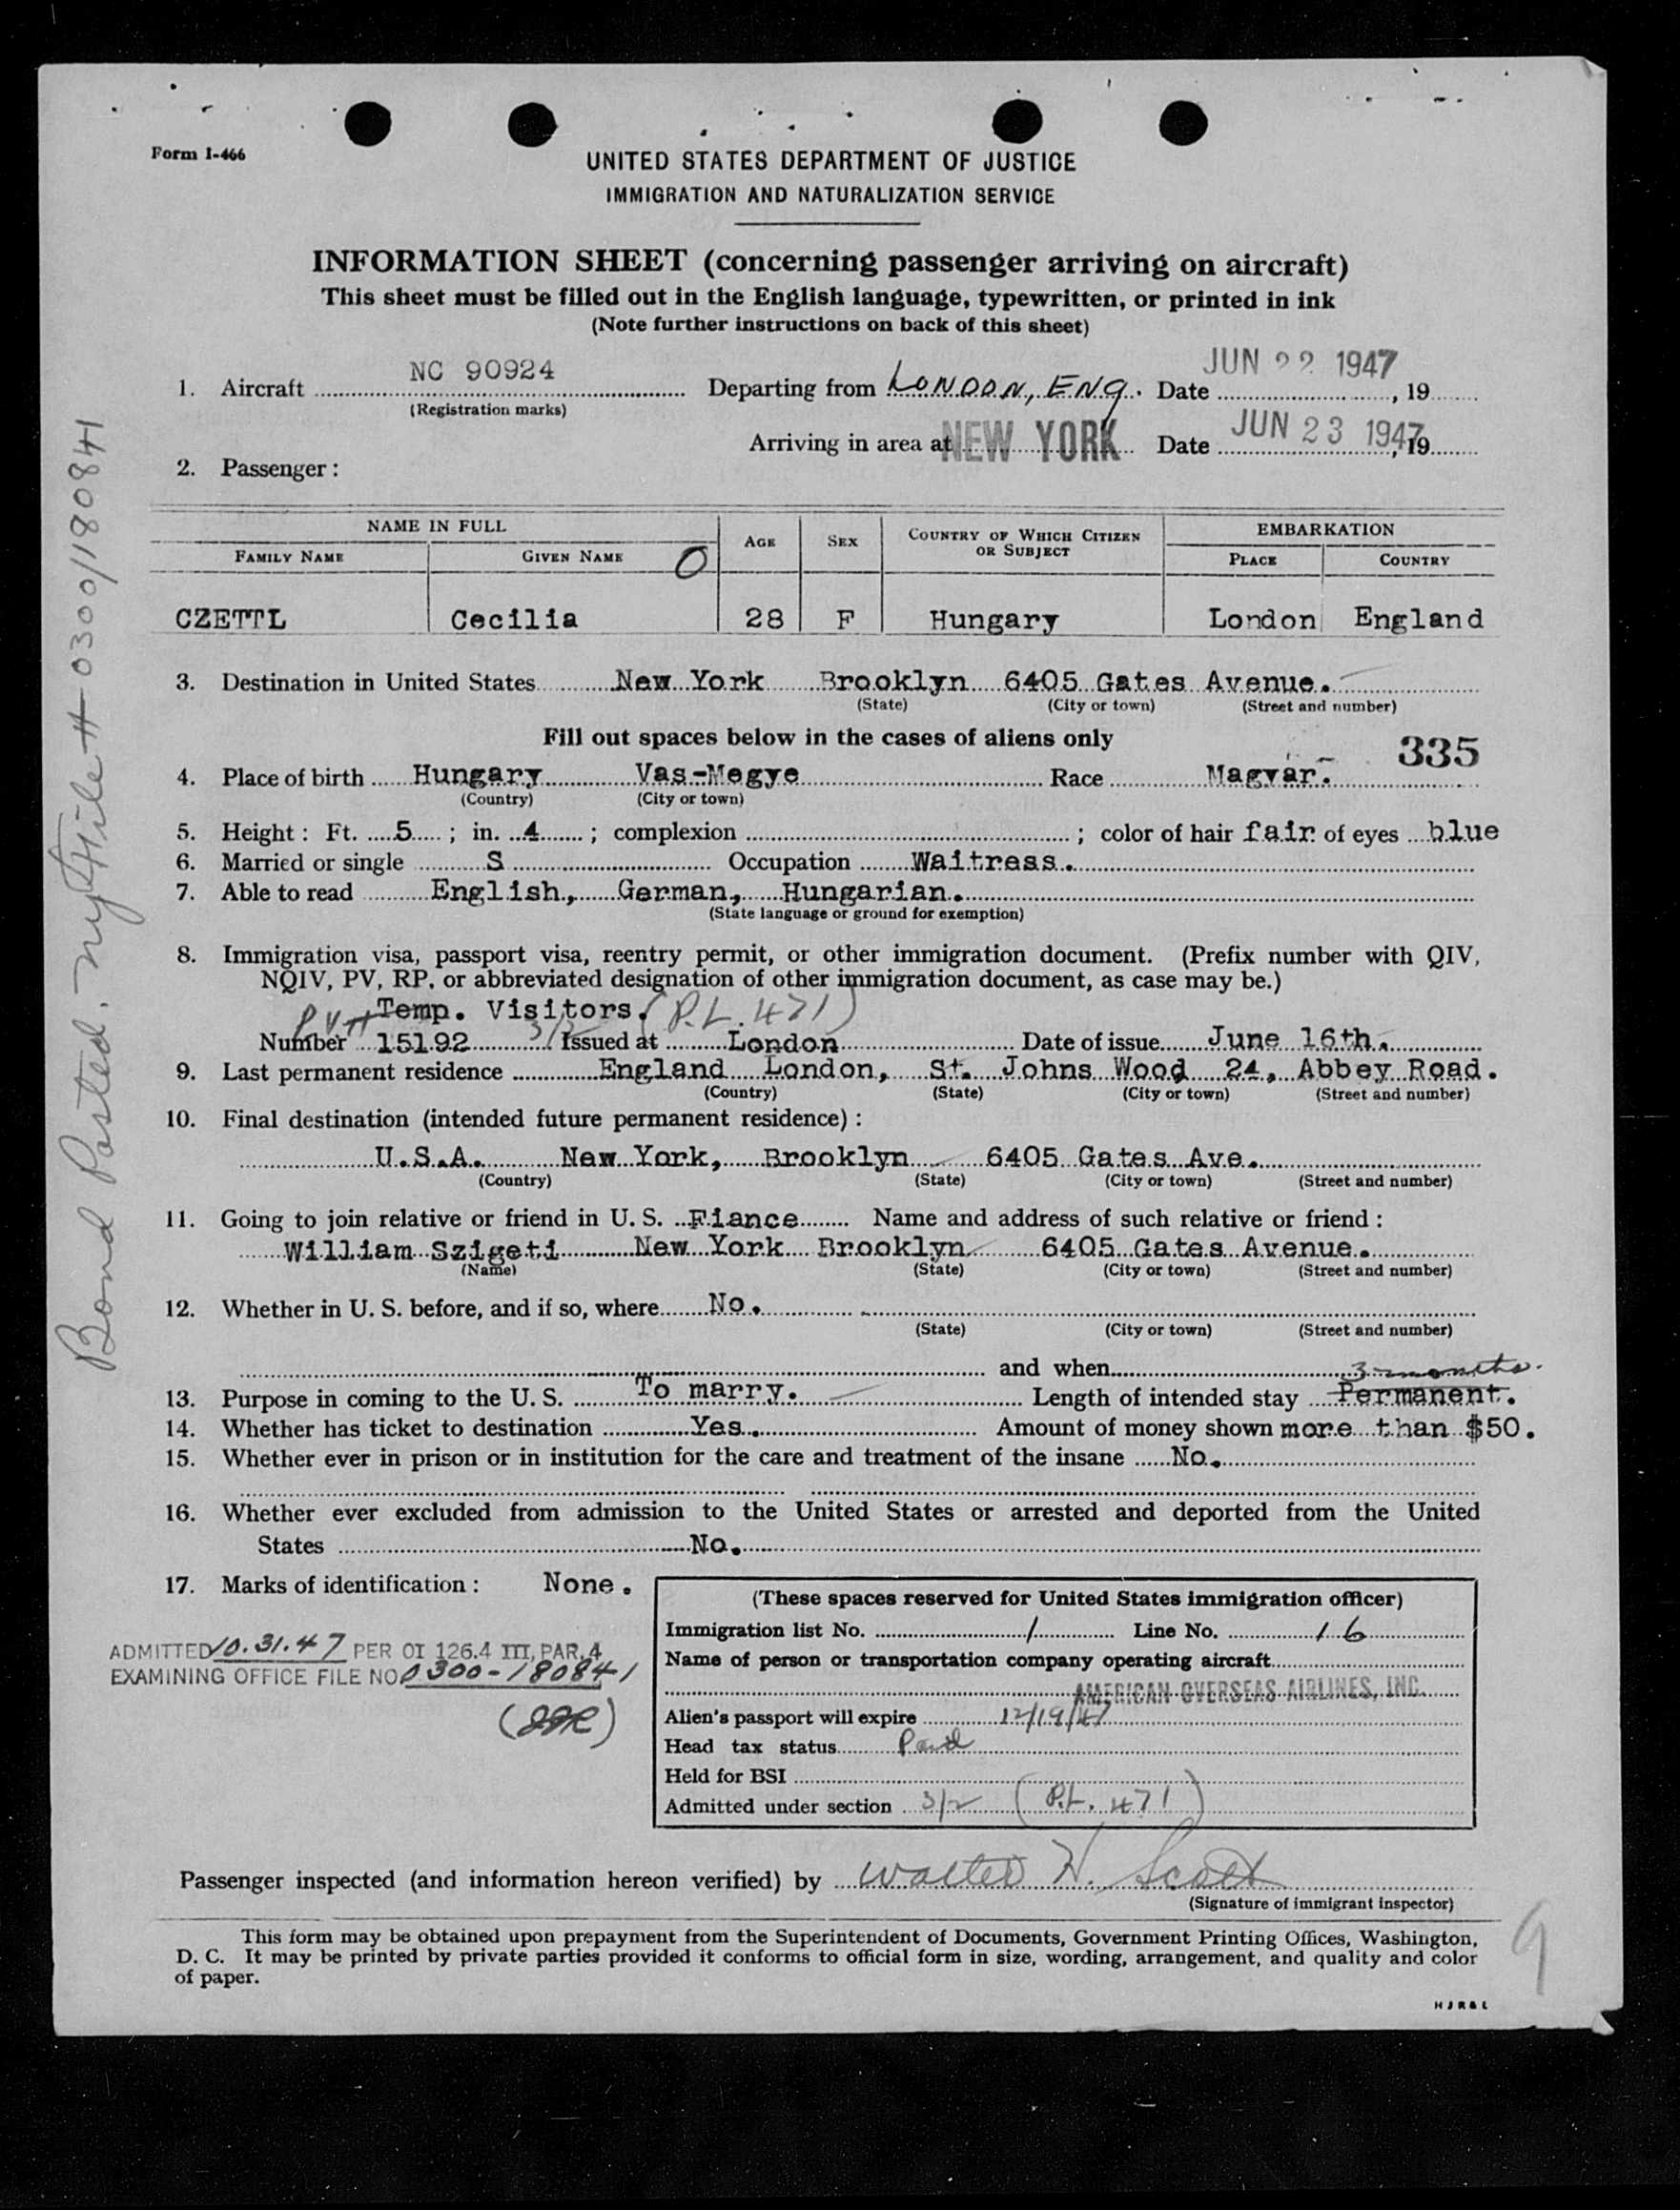 Form I-466
UNITED STATES DEPARTMENT OF JUSTICE
IMMIGRATION AND NATURALIZATION SERVICE
INFORMATION SHEET (concerning passenger arriving on aircraft)
This sheet must be filled out in the English language, typewritten, or printed in ink
(Note further instructions on back of this sheet)
1. Aircraft NC 90924 Departing from LONDON, ENG. Date JUN 22 1947, 19
(Registration marks)
Arriving in area at NEW YORK Date JUN 23 1947, 19
2. Passenger:
NAME IN FULL AGE SEX COUNTRY OF WHICH CITIZEN OR SUBJECT EMBARKATION
FAMILY NAME GIVEN NAME O PLACE COUNTRY
CZETTL Cecilia 28 F Hungary London England
3. Destination in United States New York Brooklyn 6405 Gates Avenue.
(State) (City or town) (Street and number)
Fill out spaces below in the cases of aliens only
335
4. Place of birth Hungary Vas-Megye Race Magyar.
(Country) (City or town)
5. Height: Ft. 5; in. 4; complexion ; color of hair fair of eyes blue
6. Married or single S Occupation Waitress.
7. Able to read English, German, Hungarian.
(State language or ground for exemption)
8. Immigration visa, passport visa, reentry permit, or other immigration document. (Prefix number with QIV,
NQIV, PV, RP, or abbreviated designation of other immigration document, as case may be.)
PV# Temp. Visitors. (P.L. 471)
Number 15192 3/2 Issued at London Date of issue June 16th.
9. Last permanent residence England London, St. Johns Wood 24, Abbey Road.
(Country) (State) (City or town) (Street and number)
10. Final destination (intended future permanent residence):
U.S.A. New York, Brooklyn 6405 Gates Ave.
(Country) (State) (City or town) (Street and number)
11. Going to join relative or friend in U. S. Fiance Name and address of such relative or friend:
William Szigeti New York Brooklyn 6405 Gates Avenue.
(Name) (State) (City or town) (Street and number)
12. Whether in U. S. before, and if so, where No.
(State) (City or town) (Street and number)
and when 3 months.
13. Purpose in coming to the U. S. To marry. Length of intended stay Permanent.
14. Whether has ticket to destination Yes. Amount of money shown more than $50.
15. Whether ever in prison or in institution for the care and treatment of the insane No.
16. Whether ever excluded from admission to the United States or arrested and deported from the United
States No.
17. Marks of identification: None.
ADMITTED 10.31.47 PER OI 126.4 III, PAR. 4
EXAMINING OFFICE FILE NO 0300-180841
(These spaces reserved for United States immigration officer)
Immigration list No. 1 Line No. 16
Name of person or transportation company operating aircraft
AMERICAN OVERSEAS AIRLINES, INC.
Alien's passport will expire 12/19/47
Head tax status Paid
Held for BSI
Admitted under section 3/2 (P.L. 471)
Passenger inspected (and information hereon verified) by Walter H. Scott
(Signature of immigrant inspector)
This form may be obtained upon prepayment from the Superintendent of Documents, Government Printing Offices, Washington,
D. C. It may be printed by private parties provided it conforms to official form in size, wording, arrangement, and quality and color
of paper.
HJR&L
9
Bond Posted. NY File # 0300/180841